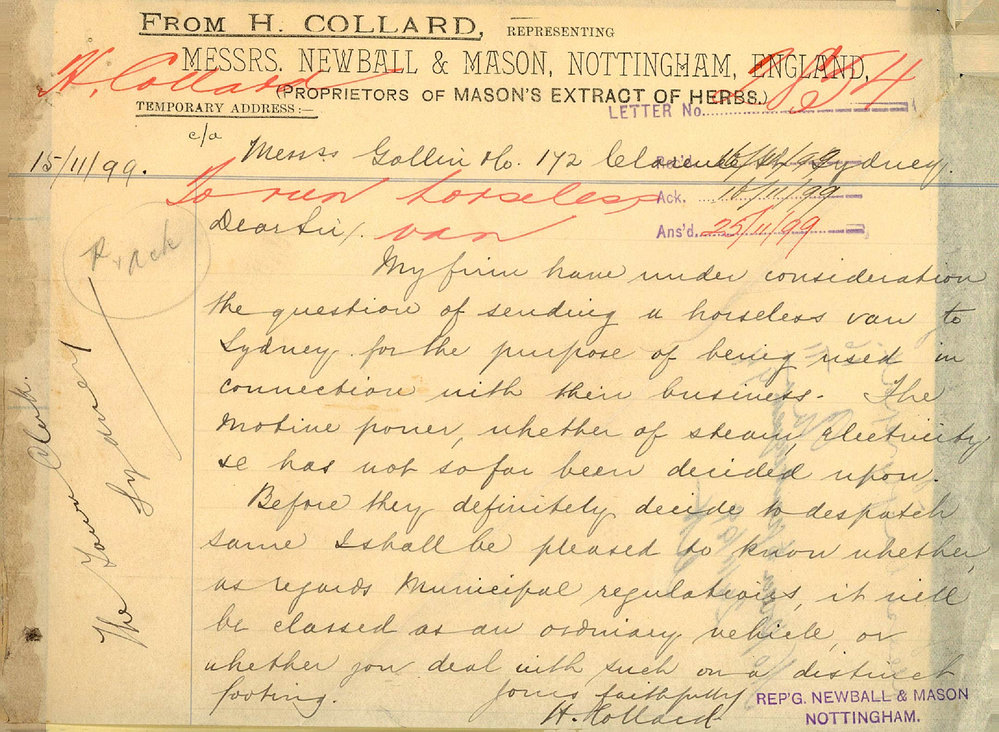 FROM H. COLLARD, REPRESENTING
MESSRS. NEWBALL & MASON, NOTTINGHAM, ENGLAND,
H. Collard
(PROPRIETORS OF MASON'S EXTRACT OF HERBS.)
TEMPORARY ADDRESS:—
LETTER No. 2854
c/o
15/11/99. Messrs Gollin & Co. 172 Clarence St, Sydney.
Rec'd
To run horseless
van
Ack. 16/11/99
Ans'd. 25/11/99
Dear Sir/.
My firm have under consideration
the question of sending a horseless van to
Sydney for the purpose of being used in
connection with their business. The
Motive power, whether of steam, Electricity
&c has not so far been decided upon.
Before they definitely decide to despatch
same I shall be pleased to know whether,
as regards Municipal regulations, it will
be classed as an ordinary vehicle, or
whether you deal with such on a distinct
footing.
Yours faithfully
H. Collard
REP'G. NEWBALL & MASON
NOTTINGHAM.
The Town Clerk.
Sydney
R & ack